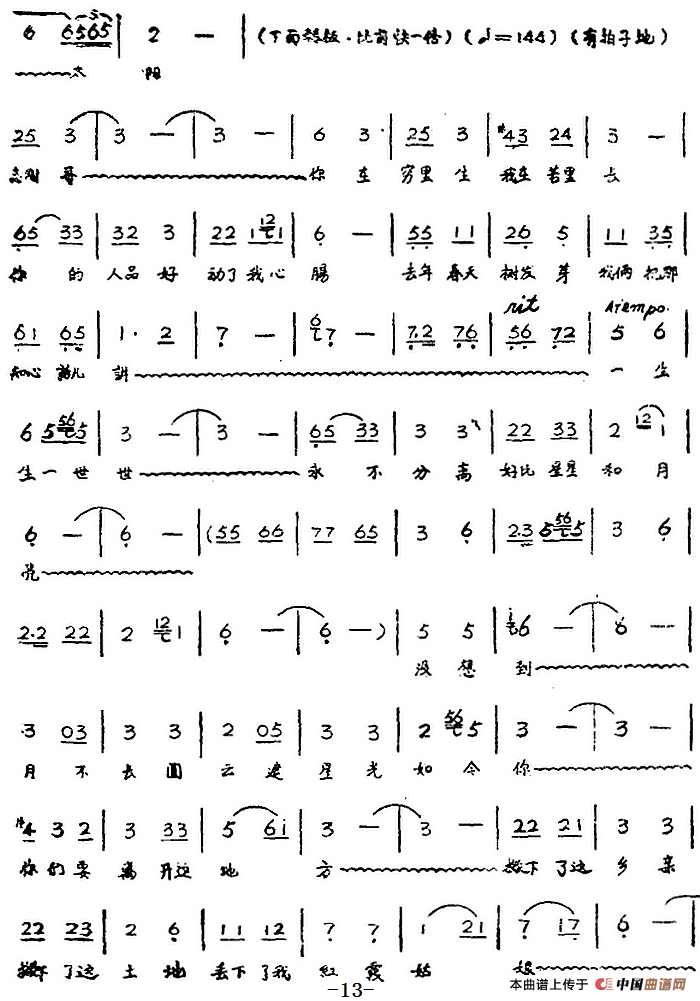 6 6565 | 2 — | (下面转板·比前快一倍) (♩=144) (有拍子地)
太 阳
25 3 | 3 — | 3 — | 6 3· | 25 3 | #43 24 | 3 — |
志刚 哥 你 在 穷里 生 我在 苦里 长
65 33 | 32 3 | 22 1 12 1 | 6 — | 55 11 | 26 5 | 11 35 |
你 的 人品 好 动了 我心 肠 去年 春天 树发 芽 我俩 把那
rit Atempo.
61 65 | 1· 2 | 7 — | 6 7 — | 7.2 76 | 56 72 | 5 6 |
知心 话儿 讲 一 生
6 5 56 5 | 3 — | 3 — | 65 33 | 3 3 | 22 33 | 2 12 1 |
生 一 世 世 永 不 分 离 好比 星星 和 月
6 — | 6 — | (55 66 | 77 65 | 3 6 | 2.3 5 56 5 | 3 6 |
亮
2.2 22 | 2 12 1 | 6 — | 6 —) | 5 5 | i 6 — | 6 — |
没 想 到
3 03 | 3 3 | 2 05 | 3 3 | 2 56 5 | 3 — | 3 — |
月 不 长 圆 云 遮 星 光 如 今 你
#4 3 2 | 3 33 | 5 6i | 3 — | 3 — | 22 21 | 3 3 |
你 们 要 离 开这 地 方 撇下 了这 乡 亲
22 23 | 2 6 | 11 12 | 7 7 | 1 21 | 7 17 | 6 — |
撇下 了这 土 地 丢下 了我 红 霞 姑 娘
-13-
本曲谱上传于 中国曲谱网